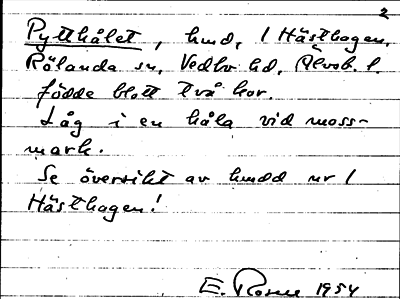 2
Pytthålet, hmd, 1 Hästhagen,
Rölanda sn, Vedbo hd, Älvsb. l.
födde blott två kor.
Låg i en håla vid moss-
mark.
Se översikt av hmdd nr 1
Hästhagen!
E. Rosne 1954